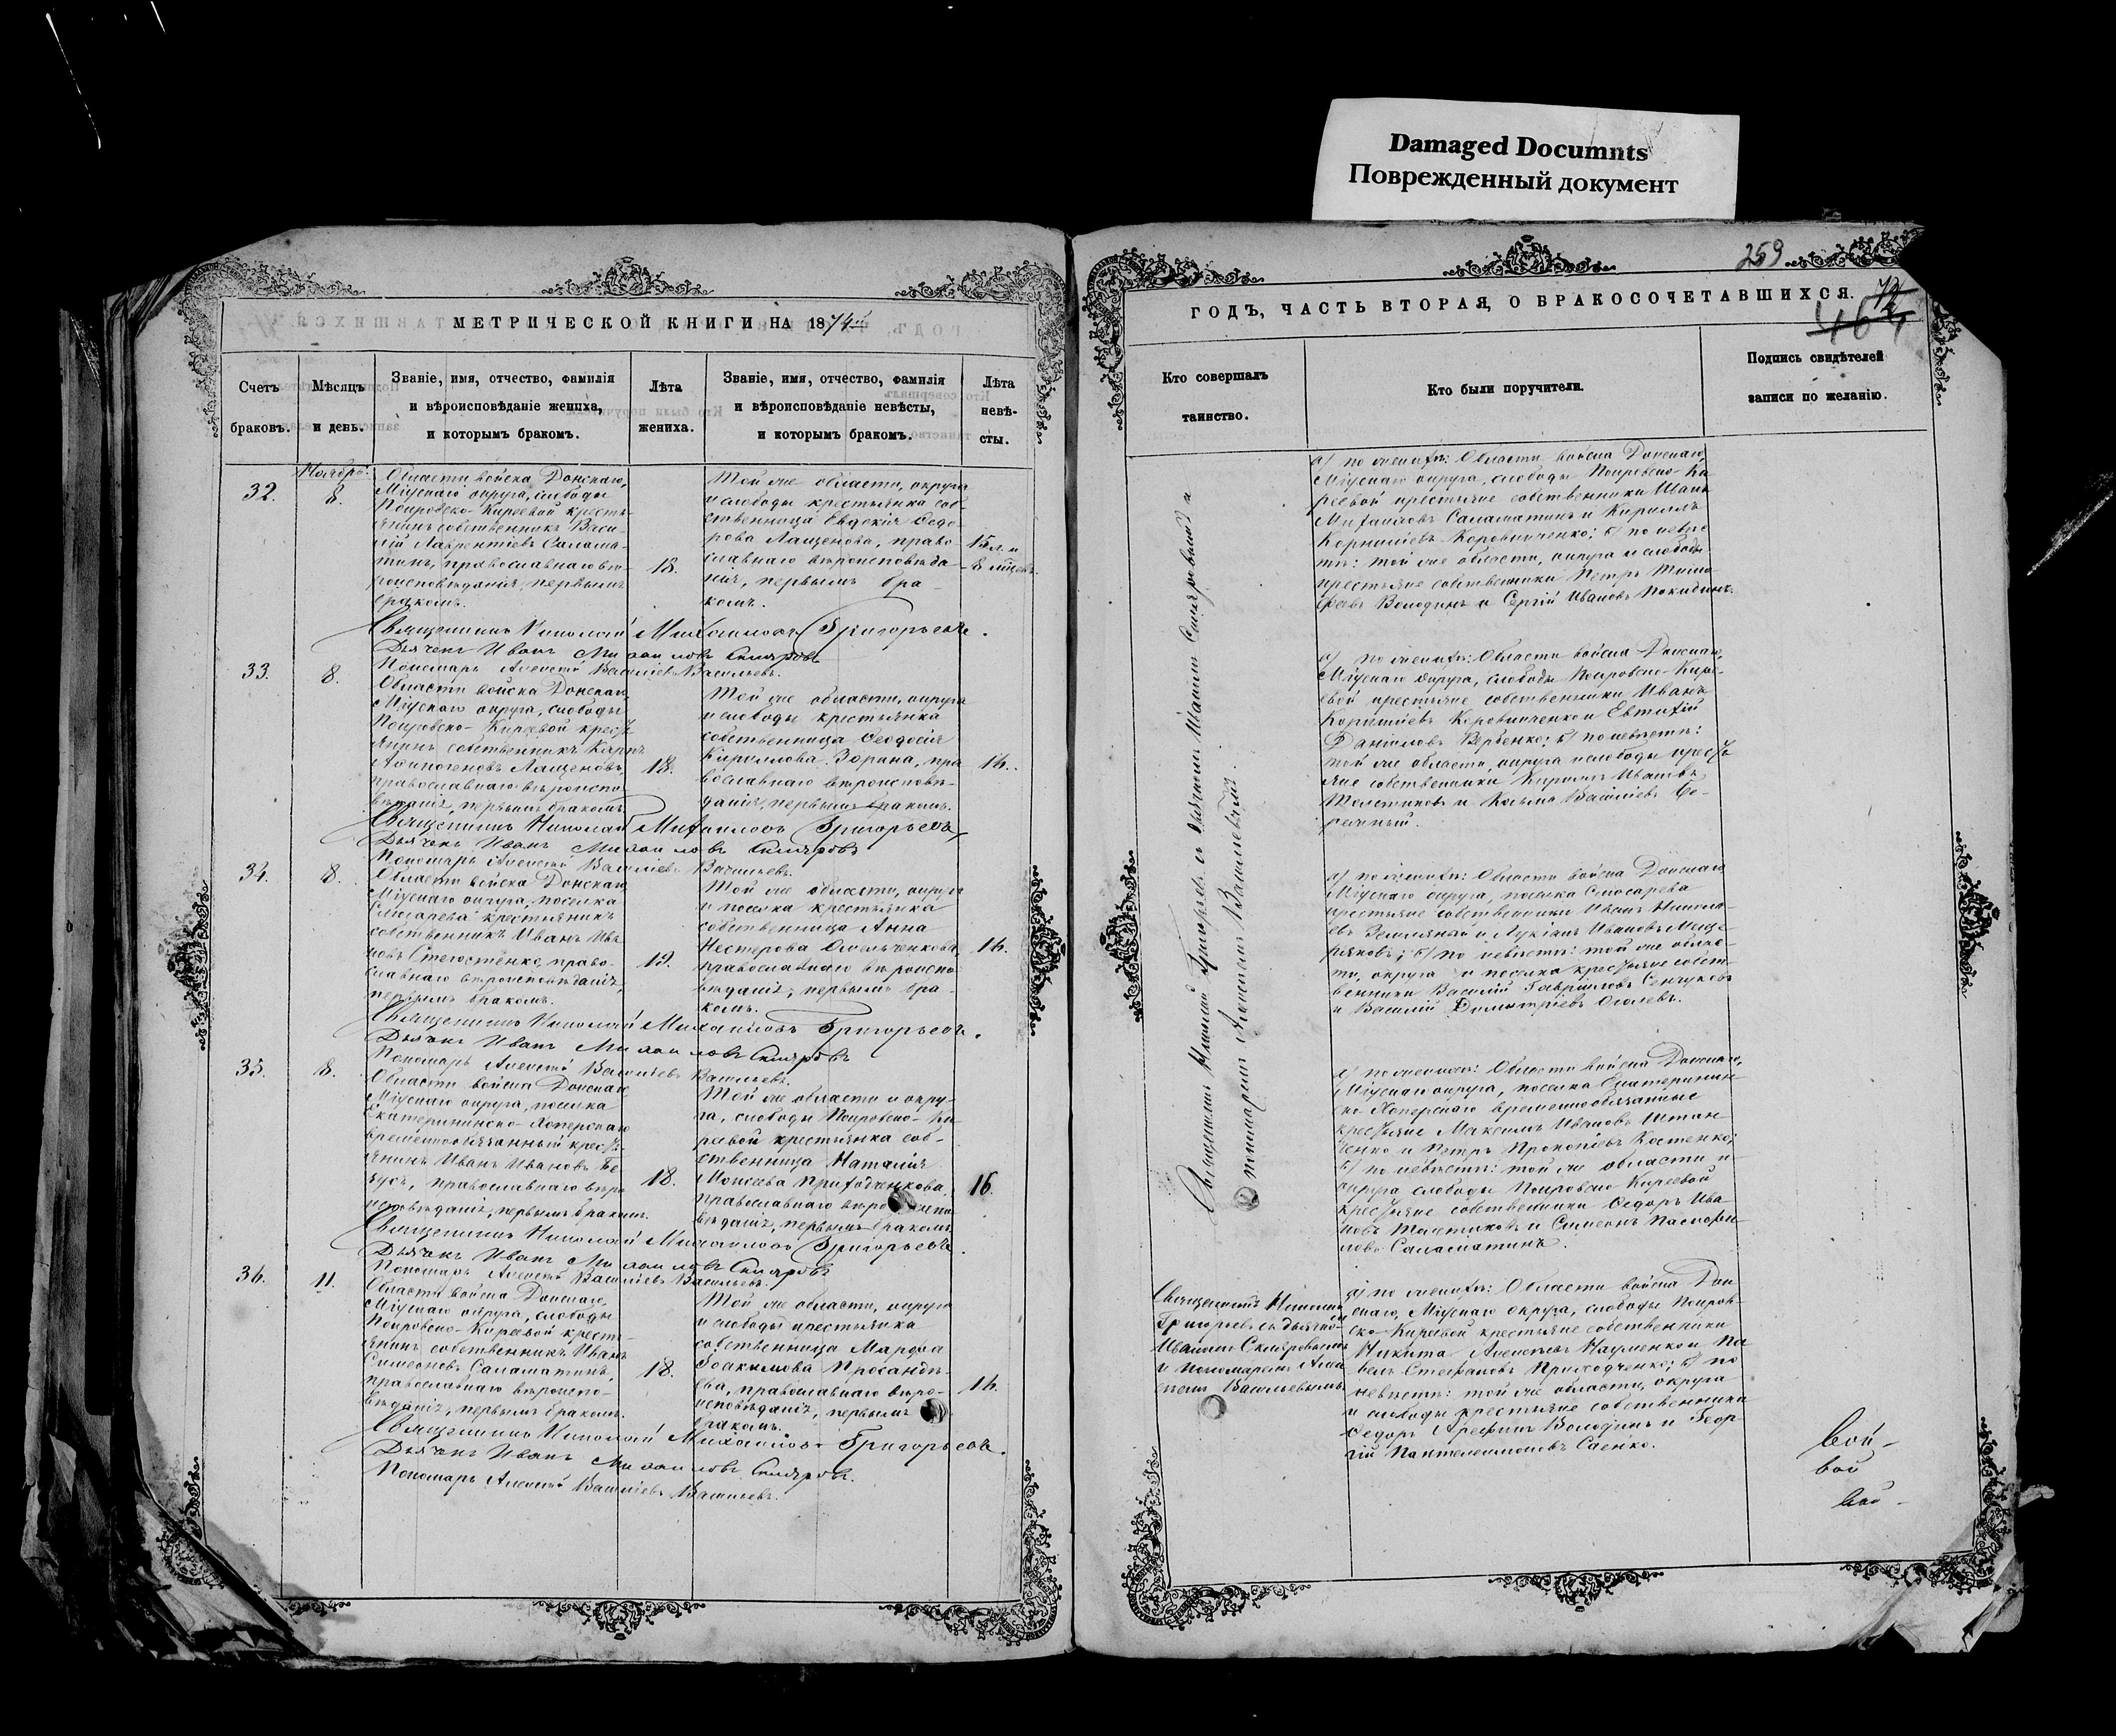 Damaged Documnts
Поврежденный документ
МЕТРИЧЕСКОЙ КНИГИ НА 1874
Счетъ браковъ.
Мѣсяцъ и день.
Званіе, имя, отчество, фамилія
и вѣроисповѣданіе жениха,
и которымъ бракомъ.
Лѣта
жениха.
Званіе, имя, отчество, фамилія
и вѣроисповѣданіе невѣсты,
и которымъ бракомъ.
Лѣта
невѣ-
сты.
32.
Ноябрь
8.
Области войска Донскаго,
Міускаго округа, слободы
Покровско-Киреевой кресть-
янинъ собственникъ Васи-
лій Лаврентіевъ Салама-
тинъ, православнаго вѣ-
роисповѣданія, первымъ
бракомъ.
18.
Той же области, округа
и слободы крестьянка соб-
ственница Евдокія Ѳедо-
рова Лащенова, право-
славнаго вѣроисповѣда-
нія, первымъ бра-
комъ.
15 л. и
8 мѣцев.
Священникъ Николай Михайловъ Григорьевъ.
Дьячекъ Иванъ Михаиловъ Скляровъ
Пономарь Алексѣй Васильевъ Васильевъ.
33.
8.
Области войска Донскаго,
Міускаго округа, слободы
Покровско-Киреевой кресть-
янинъ собственникъ Карпъ
Лащеновъ,
православнаго вѣроиспо-
вѣданія, первымъ бракомъ.
18.
Той же области, округа
и слободы крестьянка
собственница Ѳеодосія
Кириллова Зорина, пра-
вославнаго вѣроисповѣ-
данія, первымъ бракомъ.
16.
Священникъ Николай Михайловъ Григорьевъ
Дьячекъ Иванъ Михаиловъ Скляровъ
Пономарь Алексѣй Васильевъ Васильевъ.
34.
8.
Области войска Донскаго,
Міускаго округа, поселка
Слюсарева крестьянинъ
собственникъ Иванъ Ива-
новъ право-
славнаго вѣроисповѣданія,
первымъ бракомъ.
19.
Той же области, округа
и поселка крестьянка
собственница Анна
Нестерова Омельченкова,
православнаго вѣроиспо-
вѣданія, первымъ бра-
комъ.
16.
Священникъ Николай Михайловъ Григорьевъ.
Дьячекъ Иванъ Михаиловъ Скляровъ
Пономарь Алексѣй Васильевъ Васильевъ.
35.
8.
Области войска Донскаго
Міускаго округа, поселка
Екатерининско-Хоперскаго
временнообязанный кресть-
янинъ Иванъ Ивановъ
православнаго вѣро-
исповѣданія, первымъ бракомъ.
18.
Той же области и окру-
га, слободы Покровско-Ки-
реевой крестьянка соб-
ственница Наталія
Моисеева Приходченкова,
православнаго вѣроиспо-
вѣданія, первымъ бракомъ.
16.
Священникъ Николай Михайловъ Григорьевъ.
Дьячекъ Иванъ Михаиловъ Скляровъ
Пономарь Алексѣй Васильевъ Васильевъ.
36.
11.
Области войска Донскаго,
Міускаго округа, слободы
Покровско-Киреевой кресть-
янинъ собственникъ Иванъ
Симеоновъ Саламатинъ,
православнаго вѣроиспо-
вѣданія, первымъ бракомъ.
18.
Той же области, округа
и слободы крестьянка
собственница Марѳа
Іоакимова
православнаго вѣро-
исповѣданія, первымъ
бракомъ.
16.
Священникъ Николай Михайловъ Григорьевъ.
Дьячекъ Иванъ Михаиловъ Скляровъ.
Пономарь Алексѣй Васильевъ Васильевъ.
259
ГОДЪ, ЧАСТЬ ВТОРАЯ, О БРАКОСОЧЕТАВШИХСЯ.
Кто совершалъ
таинство.
Кто были поручители.
Подпись свидѣтелей
записи по желанію.
Священникъ Николай Григорьевъ съ дьячкомъ Иваномъ Скляровымъ и
пономаремъ Алексѣемъ Васильевымъ.
а) по женихѣ: Области войска Донскаго,
Міускаго округа, слободы Покровско-Ки-
реевой крестьяне собственники Иванъ
Михаиловъ Саламатинъ и Кириллъ
Корниліевъ Коровниченко; б) по невѣс-
тѣ: той же области, округа и слободы
крестьяне собственники Петръ Тимо-
ѳеевъ Володинъ и Сергій Ивановъ Покидинъ.
а) по женихѣ: Области войска Донскаго,
Міускаго округа, слободы Покровско-Кире-
евой крестьяне собственники Иванъ
Корниліевъ Коровниченко и Евтихій
Даніиловъ Вербенко; б) по невѣстѣ:
той же области, округа и слободы кресть-
яне собственники Кириллъ Ивановъ
Толстиковъ и Козьма Васильевъ
а) по женихѣ: Области войска Донскаго
Міускаго округа, поселка Слюсарева
крестьяне собственники Иванъ
Земляной и Лукіанъ Ивановъ Меще-
ряковъ; б) по невѣстѣ: той же облас-
ти, округа и поселка крестьяне собст-
венники Василій Гавриловъ Сенчуковъ
и Василій Димитріевъ
а) по женихѣ: Области войска Донскаго,
Міускаго округа, поселка Екатеринин-
ско-Хоперскаго временнообязанные
крестьяне Максимъ Ивановъ
и Петръ Прокопіевъ Костенко;
б) по невѣстѣ: той же области и
округа слободы Покровско-Киреевой
крестьяне собственники Ѳедоръ Ива-
новъ Толстиковъ и Симеонъ
Саламатинъ.
Священникъ Николай
Григорьевъ съ дьячкомъ
Иваномъ Скляровымъ
и пономаремъ Але-
ксѣемъ Васильевымъ
а) по женихѣ: Области войска Дон-
скаго, Міускаго округа, слободы Покров-
ско-Киреевой крестьяне собственники
Никита Алексѣевъ Науменко и Па-
велъ Стефановъ Приходченко; б) по
невѣстѣ: той же области, округа
и слободы крестьяне собственники
Ѳедоръ Арефинъ Володинъ и Геор-
гій Пантелеимоновъ Саенко.